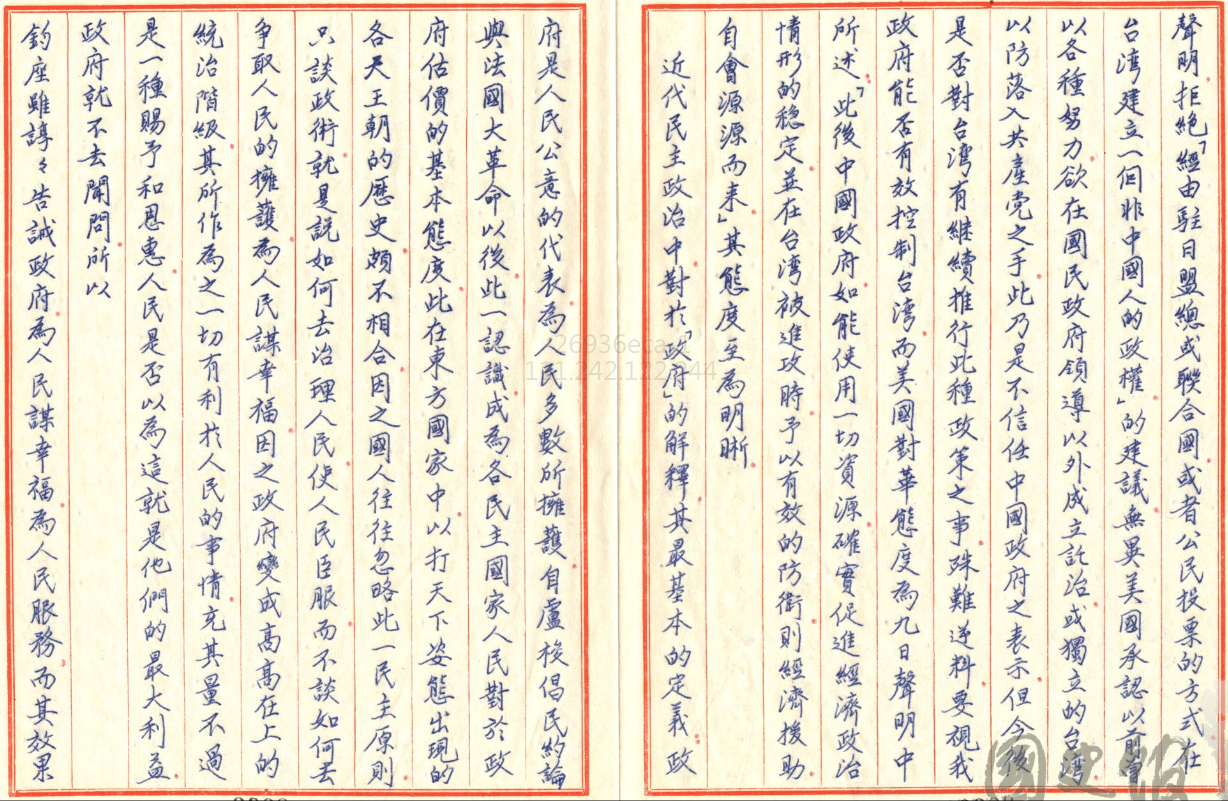 聲明拒絕「經由駐日盟總或聯合國或者公民投票的方式在
台湾建立一個非中國人的政權」的建議無異美國承認以前曾
以各種努力欲在國民政府領導以外成立託治或獨立的台湾
以防落入共產党之手此乃是不信任中國政府之表示但今後
是否對台湾有継續推行此種政策之事殊難逆料要視我
政府能否有效控制台湾而美國對華態度為九日聲明中
所述「此後中國政府如能使用一切資源確實促進經濟政治
情形的稳定並在台湾被進攻時予以有效的防衛則經濟援助
自會源源而来」其態度至為明晰
近代民主政治中對於「政府」的解釋其最基本的定義政
府是人民公意的代表為人民多數所擁護自盧梭倡民約論
與法國大革命以後此一認識成為各民主國家人民對於政
府估價的基本態度此在東方國家中以打天下姿態出現的
各天王朝的歷史頗不相合因之國人往往忽略此一民主原則
只談政術就是說如何去治理人民使人民臣服而不談如何去
爭取人民的擁護為人民謀幸福因之政府變成高高在上的
統治階級其所作為之一切有利於人民的事情充其量不過
是一種賜予和恩惠人民是否以為這就是他們的最大利益
政府就不去聞問所以
鈞座雖諄々告誡政府為人民謀幸福為人民服務而其效果
國史館